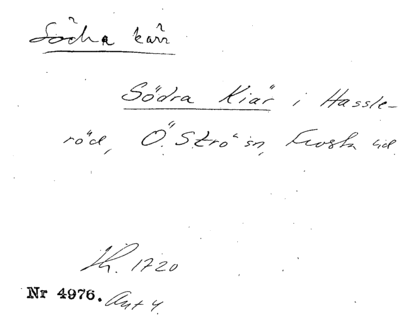 Södra kärr
Södra Kiär i Hassle-
röd, Ö. Strö sn, Frosta hd
Lh. 1720
Nr 4976. Ant 4.